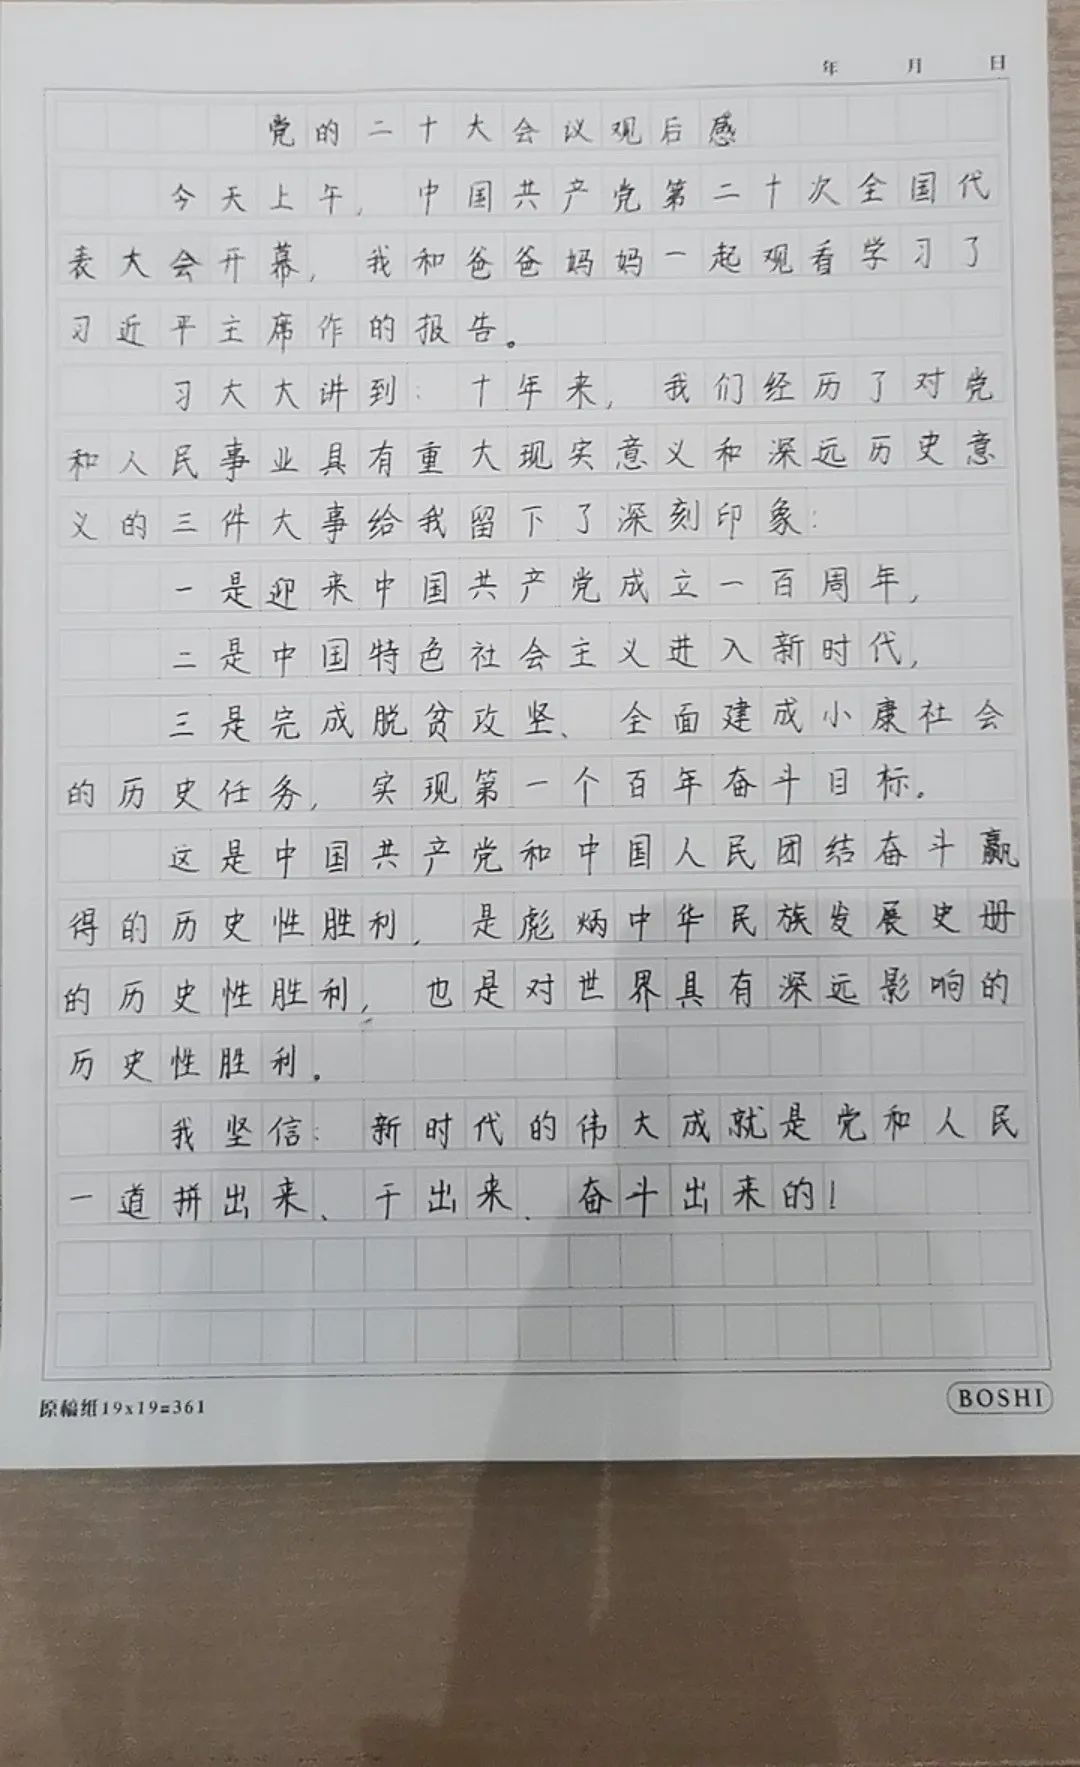 年 月 日
党的二十大会议观后感
今天上午，中国共产党第二十次全国代
表大会开幕，我和爸爸妈妈一起观看学习了
习近平主席作的报告。
习大大讲到：十年来，我们经历了对党
和人民事业具有重大现实意义和深远历史意
义的三件大事给我留下了深刻印象：
一是迎来中国共产党成立一百周年，
二是中国特色社会主义进入新时代，
三是完成脱贫攻坚、全面建成小康社会
的历史任务，实现第一个百年奋斗目标。
这是中国共产党和中国人民团结奋斗赢
得的历史性胜利，是彪炳中华民族发展史册
的历史性胜利，也是对世界具有深远影响的
历史性胜利。
我坚信：新时代的伟大成就是党和人民
一道拼出来、干出来、奋斗出来的！
原稿纸19x19=361
BOSHI